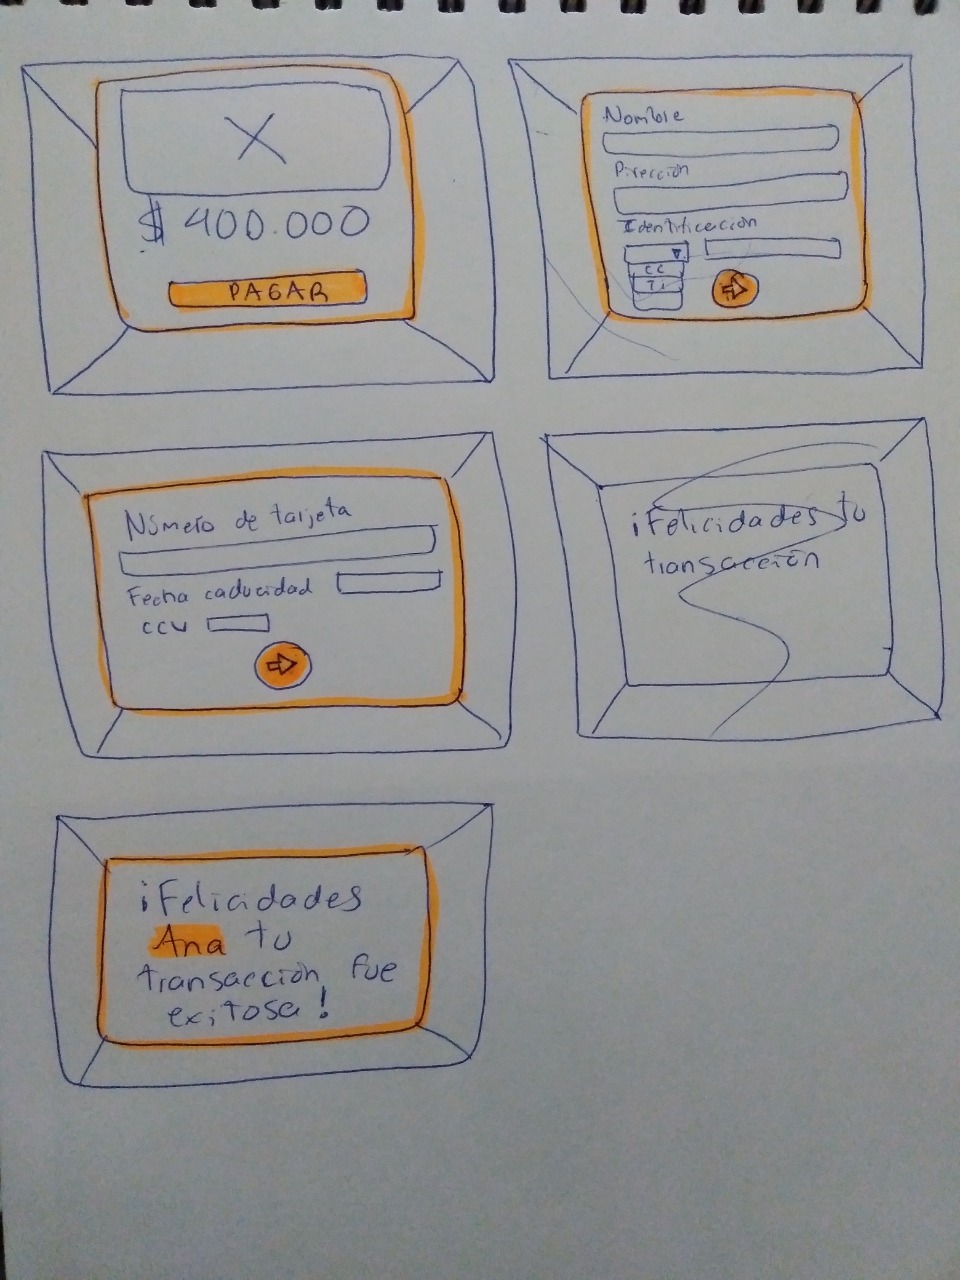 $ 400.000
PAGAR
Nombre
Dirección
Identificación
CC
Ti
Número de tarjeta
Fecha caducidad
CCV
¡Felicidades tu
transacción
¡Felicidades
Ana tu
transacción fue
exitosa!